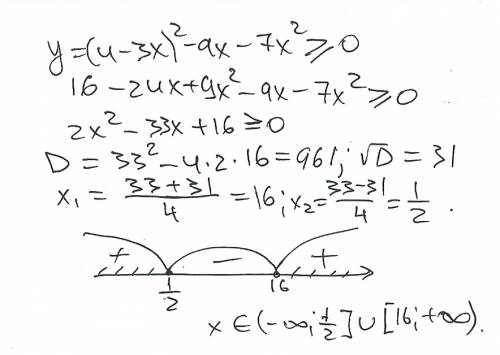 y=(4-3x)²-9x-7x²⩾0
16-24x+9x²-9x-7x²⩾0
2x²-33x+16≥0
D=33²-4·2·16=961; √D=31
x₁=(33+31)/4=16; x₂=(33-31)/4=1/2.
+ - +
1/2 16
x∈(-∞;1/2]∪[16;+∞).